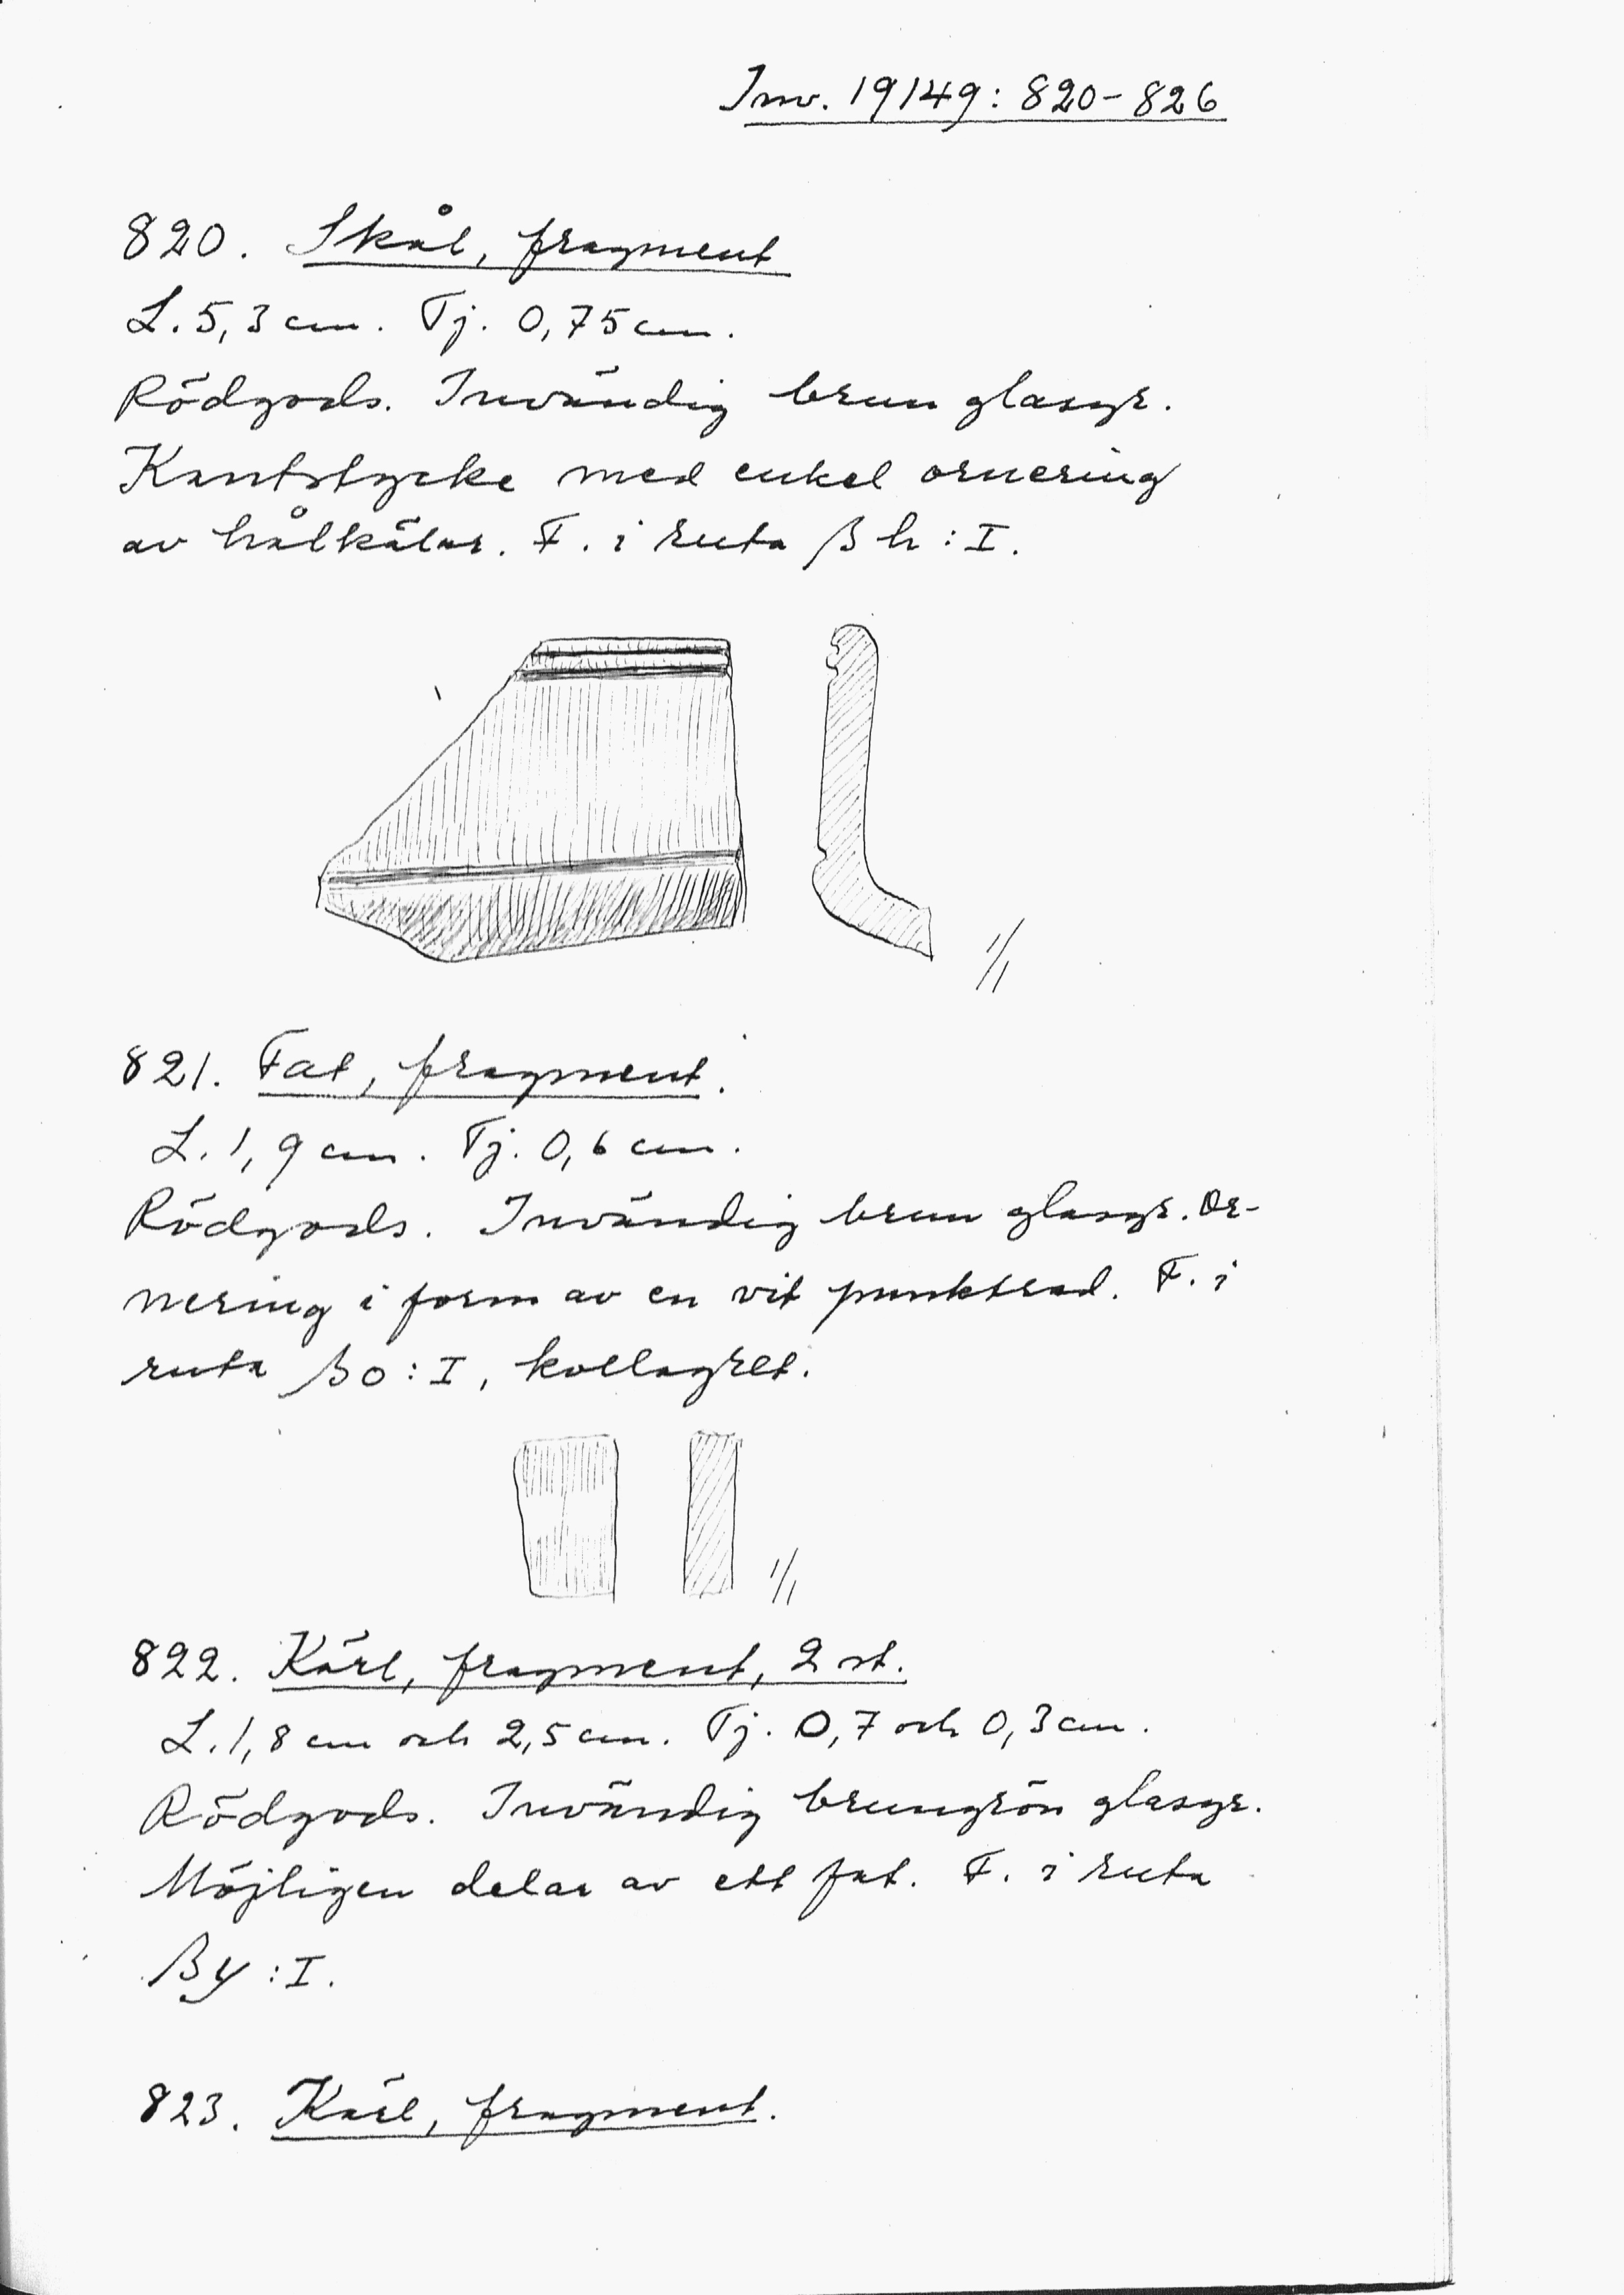 Inv. 19149: 820-826
820. Skål, fragment
L. 5,3 cm. Tj. 0,75 cm.
Rödgods. Invändig brun glasyr.
Kantstycke med enkel ornering
av hålkälar. F. i ruta βh:I.
1/1
821. Fat, fragment.
L. 1,9 cm. Tj. 0,6 cm.
Rödgods. Invändig brun glasyr. Or-
nering i form av en vit punktrad. F. i
ruta βo:I, kollagret.
1/1
822. Kärl, fragment, 2 st.
L. 1,8 cm och 2,5 cm. Tj. 0,7 och 0,3 cm.
Rödgods. Invändig brungrön glasyr.
Möjligen delar av ett fat. F. i ruta
βy:I.
823. Kärl, fragment.